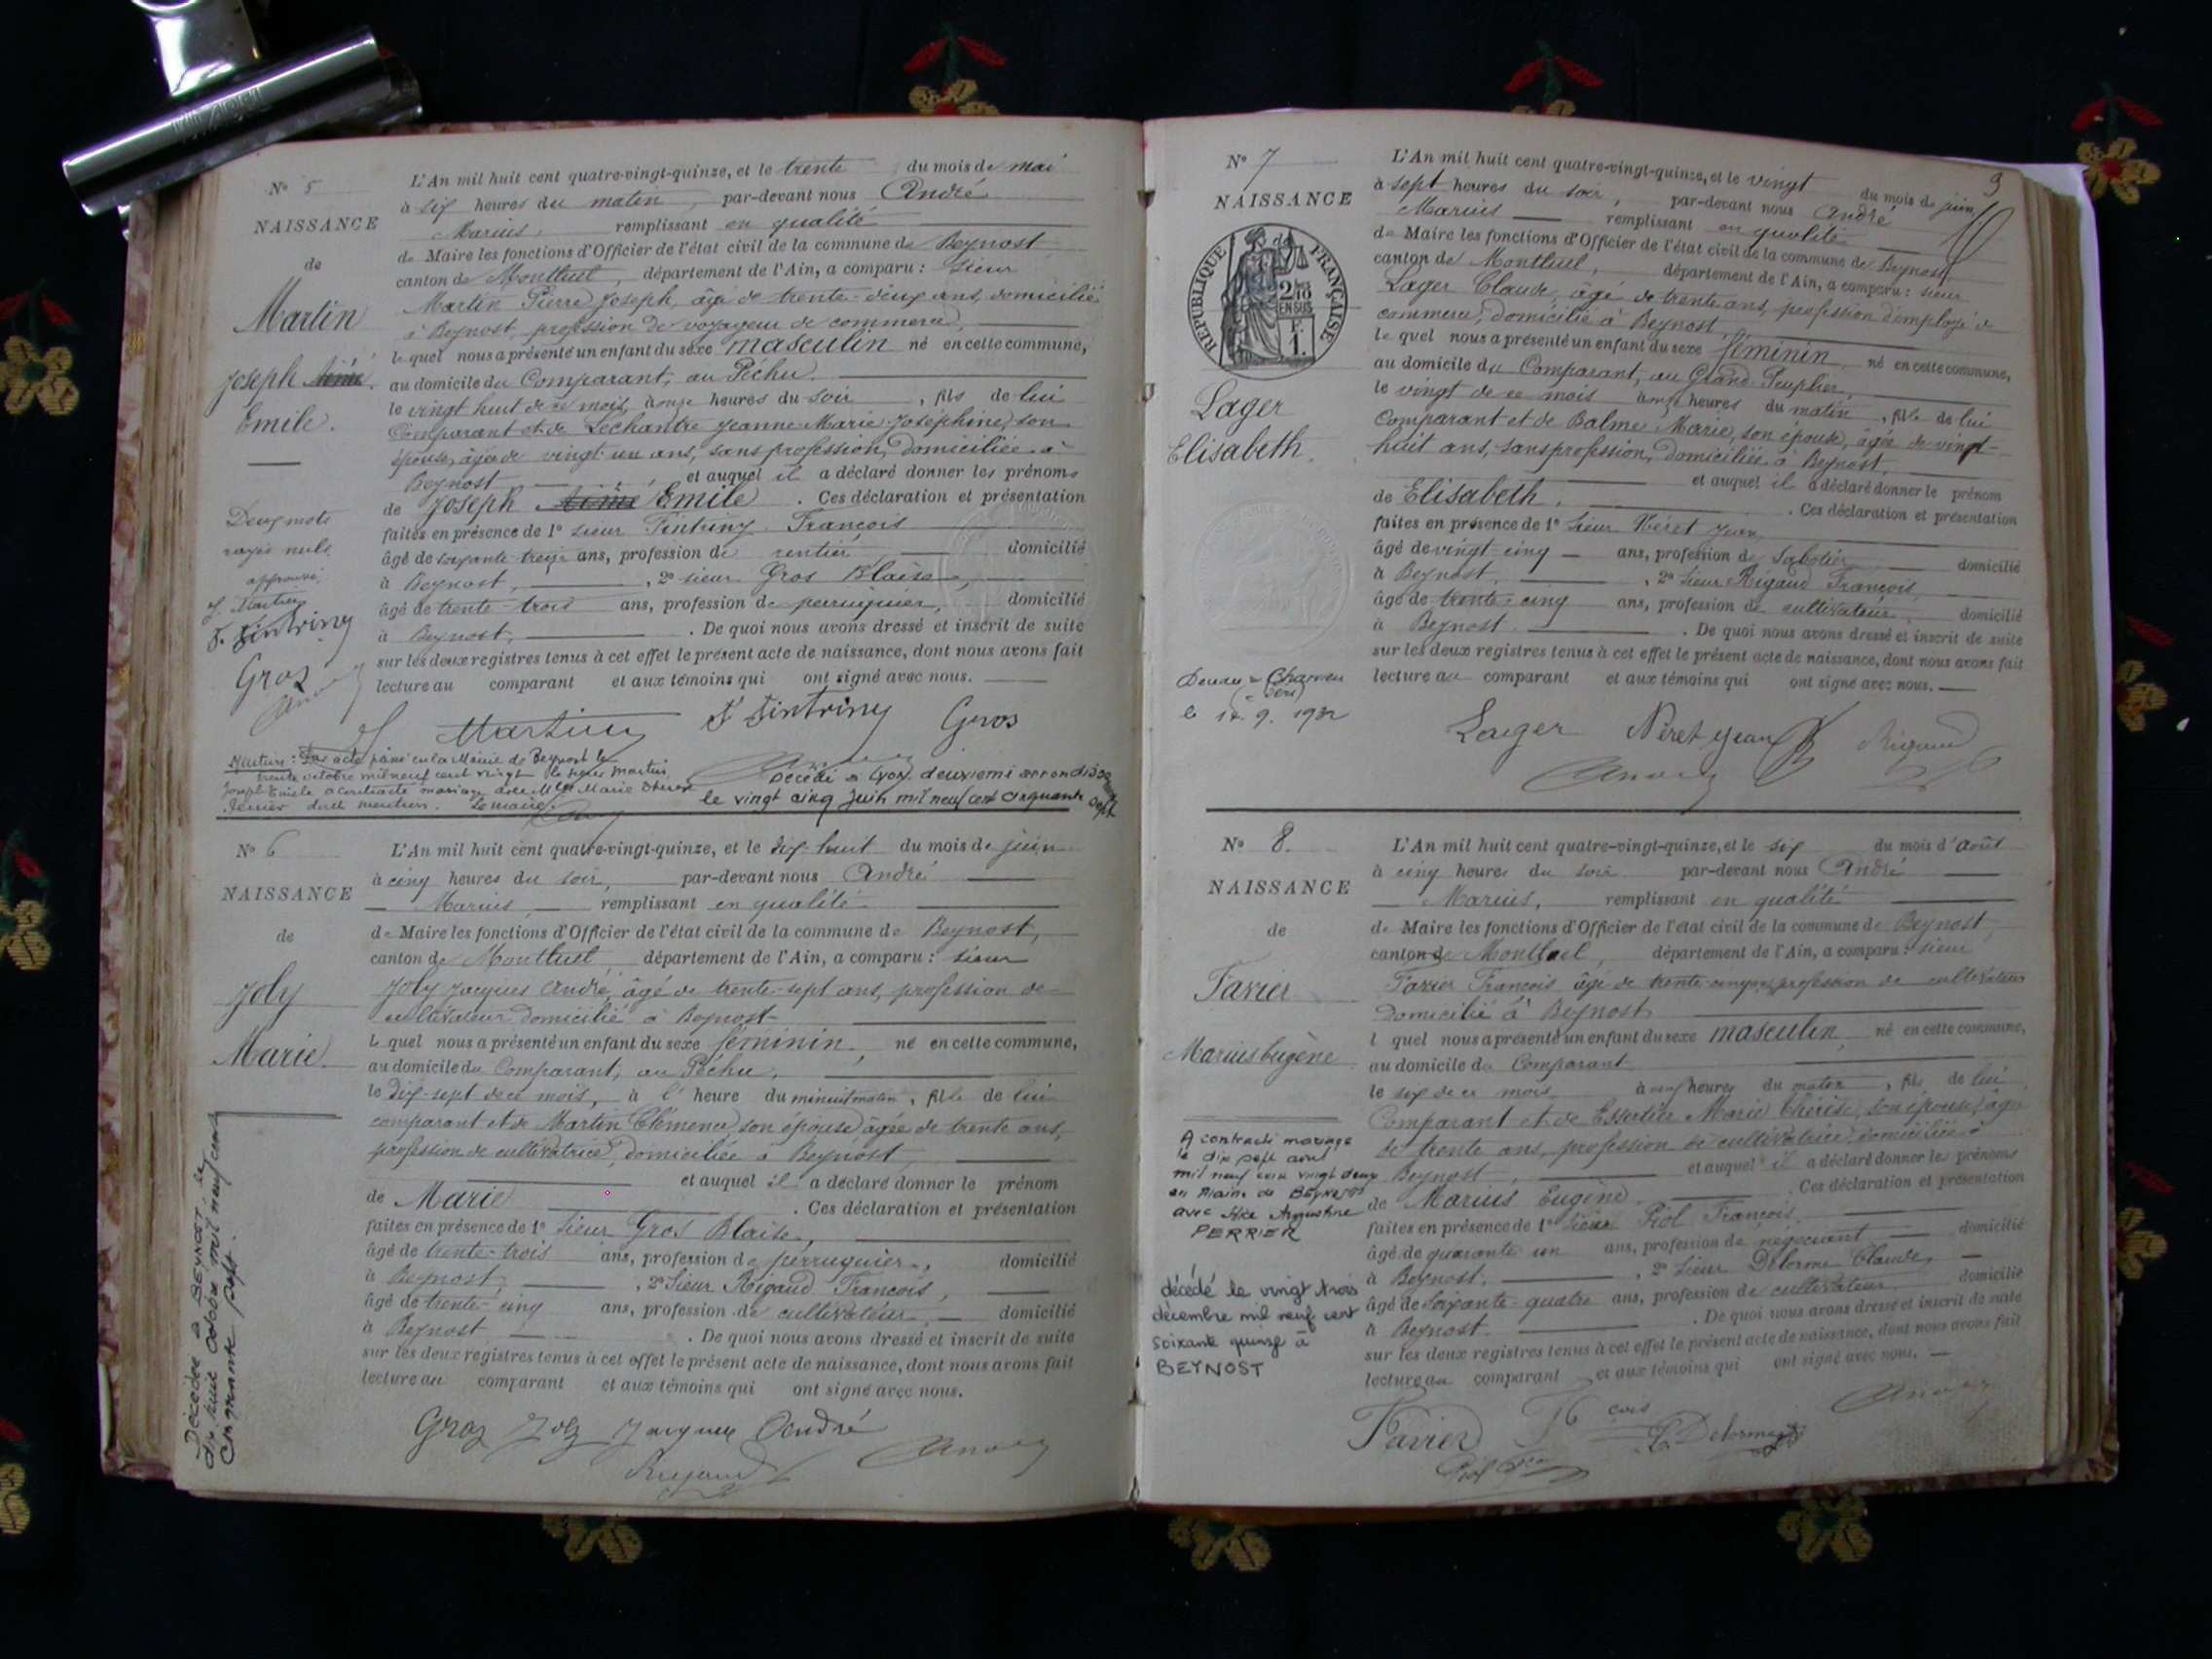 N° 5
NAISSANCE
de
Martin
Joseph Aimé
Emile.
Deux mots
rayés nuls
approuvé.
J. Martin
F. Tintriny
Gros
L'An mil huit cent quatre-vingt-quinze, et le trente du mois de mai
à six heures du matin, par-devant nous André
Marius, remplissant en qualité
de Maire les fonctions d'Officier de l'état civil de la commune de Beynost
canton de Montluel, département de l'Ain, a comparu : sieur
Martin Pierre Joseph, âgé de trente-deux ans, domicilié
à Beynost, profession de voyageur de commerce,
le quel nous a présenté un enfant du sexe masculin né en cette commune,
au domicile du Comparant, au Péchu.
le vingt huit de ce mois, à onze heures du soir, fils de lui
Comparant et de Lechantre Jeanne Marie Joséphine, son
épouse, âgée de vingt un ans, sans profession, domiciliée à
Beynost et auquel il a déclaré donner les prénoms
de Joseph Aimé Emile. Ces déclaration et présentation
faites en présence de 1° sieur Tintriny François
âgé de soixante-treize ans, profession de rentier domicilié
à Beynost, 2° sieur Gros Blaise,
âgé de trente-trois ans, profession de perruquier, domicilié
à Beynost. De quoi nous avons dressé et inscrit de suite
sur les deux registres tenus à cet effet le présent acte de naissance, dont nous avons fait
lecture au comparant et aux témoins qui ont signé avec nous.
J. Martin F. Tintriny Gros
Martin : Par acte passé en la Mairie de Beynost le
trente octobre mil neuf cent vingt le sieur Martin
Joseph Emile a contracté mariage avec Mlle Marie
dont mention. Le maire.
Décédé à Lyon deuxième arrondissement
le vingt cinq juin mil neuf cent cinquante sept
N° 6
NAISSANCE
de
Joly
Marie.
Décédée à BEYNOST le
dix huit octobre mil neuf cent
cinquante sept.
L'An mil huit cent quatre-vingt-quinze, et le dix-huit du mois de juin
à cinq heures du soir, par-devant nous André
Marius, remplissant en qualité
de Maire les fonctions d'Officier de l'état civil de la commune de Beynost,
canton de Montluel, département de l'Ain, a comparu : sieur
Joly Jacques André, âgé de trente-sept ans, profession de
cultivateur domicilié à Beynost
le quel nous a présenté un enfant du sexe féminin, né en cette commune,
au domicile du Comparant, au Péchu,
le dix-sept de ce mois, à l' heure du minuit matin, fille de lui
comparant et de Martin Clémence, son épouse âgée de trente ans,
profession de cultivatrice, domiciliée à Beynost,
et auquel il a déclaré donner le prénom
de Marie. Ces déclaration et présentation
faites en présence de 1° Sieur Gros Blaise,
âgé de trente-trois ans, profession de perruquier, domicilié
à Beynost, 2° Sieur Rigaud François,
âgé de trente-cinq ans, profession de cultivateur, domicilié
à Beynost. De quoi nous avons dressé et inscrit de suite
sur les deux registres tenus à cet effet le présent acte de naissance, dont nous avons fait
lecture au comparant et aux témoins qui ont signé avec nous.
Gros Joly Jacques André
Rigaud
N° 7
9
NAISSANCE
REPUBLIQUE FRANÇAISE
2/10 EN SUS
F. 1.
Lager
Elisabeth.
le 17. 9. 1932
L'An mil huit cent quatre-vingt-quinze, et le vingt du mois de juin
à sept heures du soir, par-devant nous André
Marius remplissant en qualité
de Maire les fonctions d'Officier de l'état civil de la commune de Beynost,
canton de Montluel, département de l'Ain, a comparu : sieur
Lager Claude, âgé de trente ans, profession d'employé de
commerce, domicilié à Beynost,
le quel nous a présenté un enfant du sexe féminin né en cette commune,
au domicile du Comparant, au Grand Peuplier,
le vingt de ce mois à onze heures du matin, fille de lui
Comparant et de Balme Marie, son épouse, âgée de vingt-
huit ans, sans profession, domiciliée à Beynost,
et auquel il a déclaré donner le prénom
de Elisabeth. Ces déclaration et présentation
faites en présence de 1° Sieur Néret Jean
âgé de vingt-cinq ans, profession de Sabotier domicilié
à Beynost, 2° Sieur Rigaud François,
âgé de trente-cinq ans, profession de cultivateur, domicilié
à Beynost. De quoi nous avons dressé et inscrit de suite
sur les deux registres tenus à cet effet le présent acte de naissance, dont nous avons fait
lecture au comparant et aux témoins qui ont signé avec nous.
Lager Néret Jean Rigaud
N° 8.
NAISSANCE
de
Favier
Marius Eugène
A contracté mariage
le dix sept avril
mil neuf cent vingt deux
en Mairie de BEYNOST
avec Augustine
PERRIER
décédé le vingt trois
décembre mil neuf cent
soixante quinze à
BEYNOST
L'An mil huit cent quatre-vingt-quinze, et le six du mois d'août
à cinq heures du soir par-devant nous André
Marius, remplissant en qualité
de Maire les fonctions d'Officier de l'état civil de la commune de Beynost,
canton de Montluel, département de l'Ain, a comparu : sieur
Favier François âgé de trente-cinq ans, profession de cultivateur
domicilié à Beynost
l quel nous a présenté un enfant du sexe masculin, né en cette commune,
au domicile du Comparant
le six de ce mois à neuf heures du matin, fils de lui
Comparant et de Essertin Marie Thérèse, son épouse, âgée
de trente ans, profession de cultivatrice, domiciliée à
Beynost, et auquel il a déclaré donner les prénoms
de Marius Eugène. Ces déclaration et présentation
faites en présence de 1° Sieur Piol François,
âgé de quarante un ans, profession de négociant domicilié
à Beynost, 2° Sieur Delorme Claude,
âgé de soixante-quatre ans, profession de cultivateur domicilié
à Beynost. De quoi nous avons dressé et inscrit de suite
sur les deux registres tenus à cet effet le présent acte de naissance, dont nous avons fait
lecture au comparant et aux témoins qui ont signé avec nous.
Favier Fçois C. Delorme
Piol